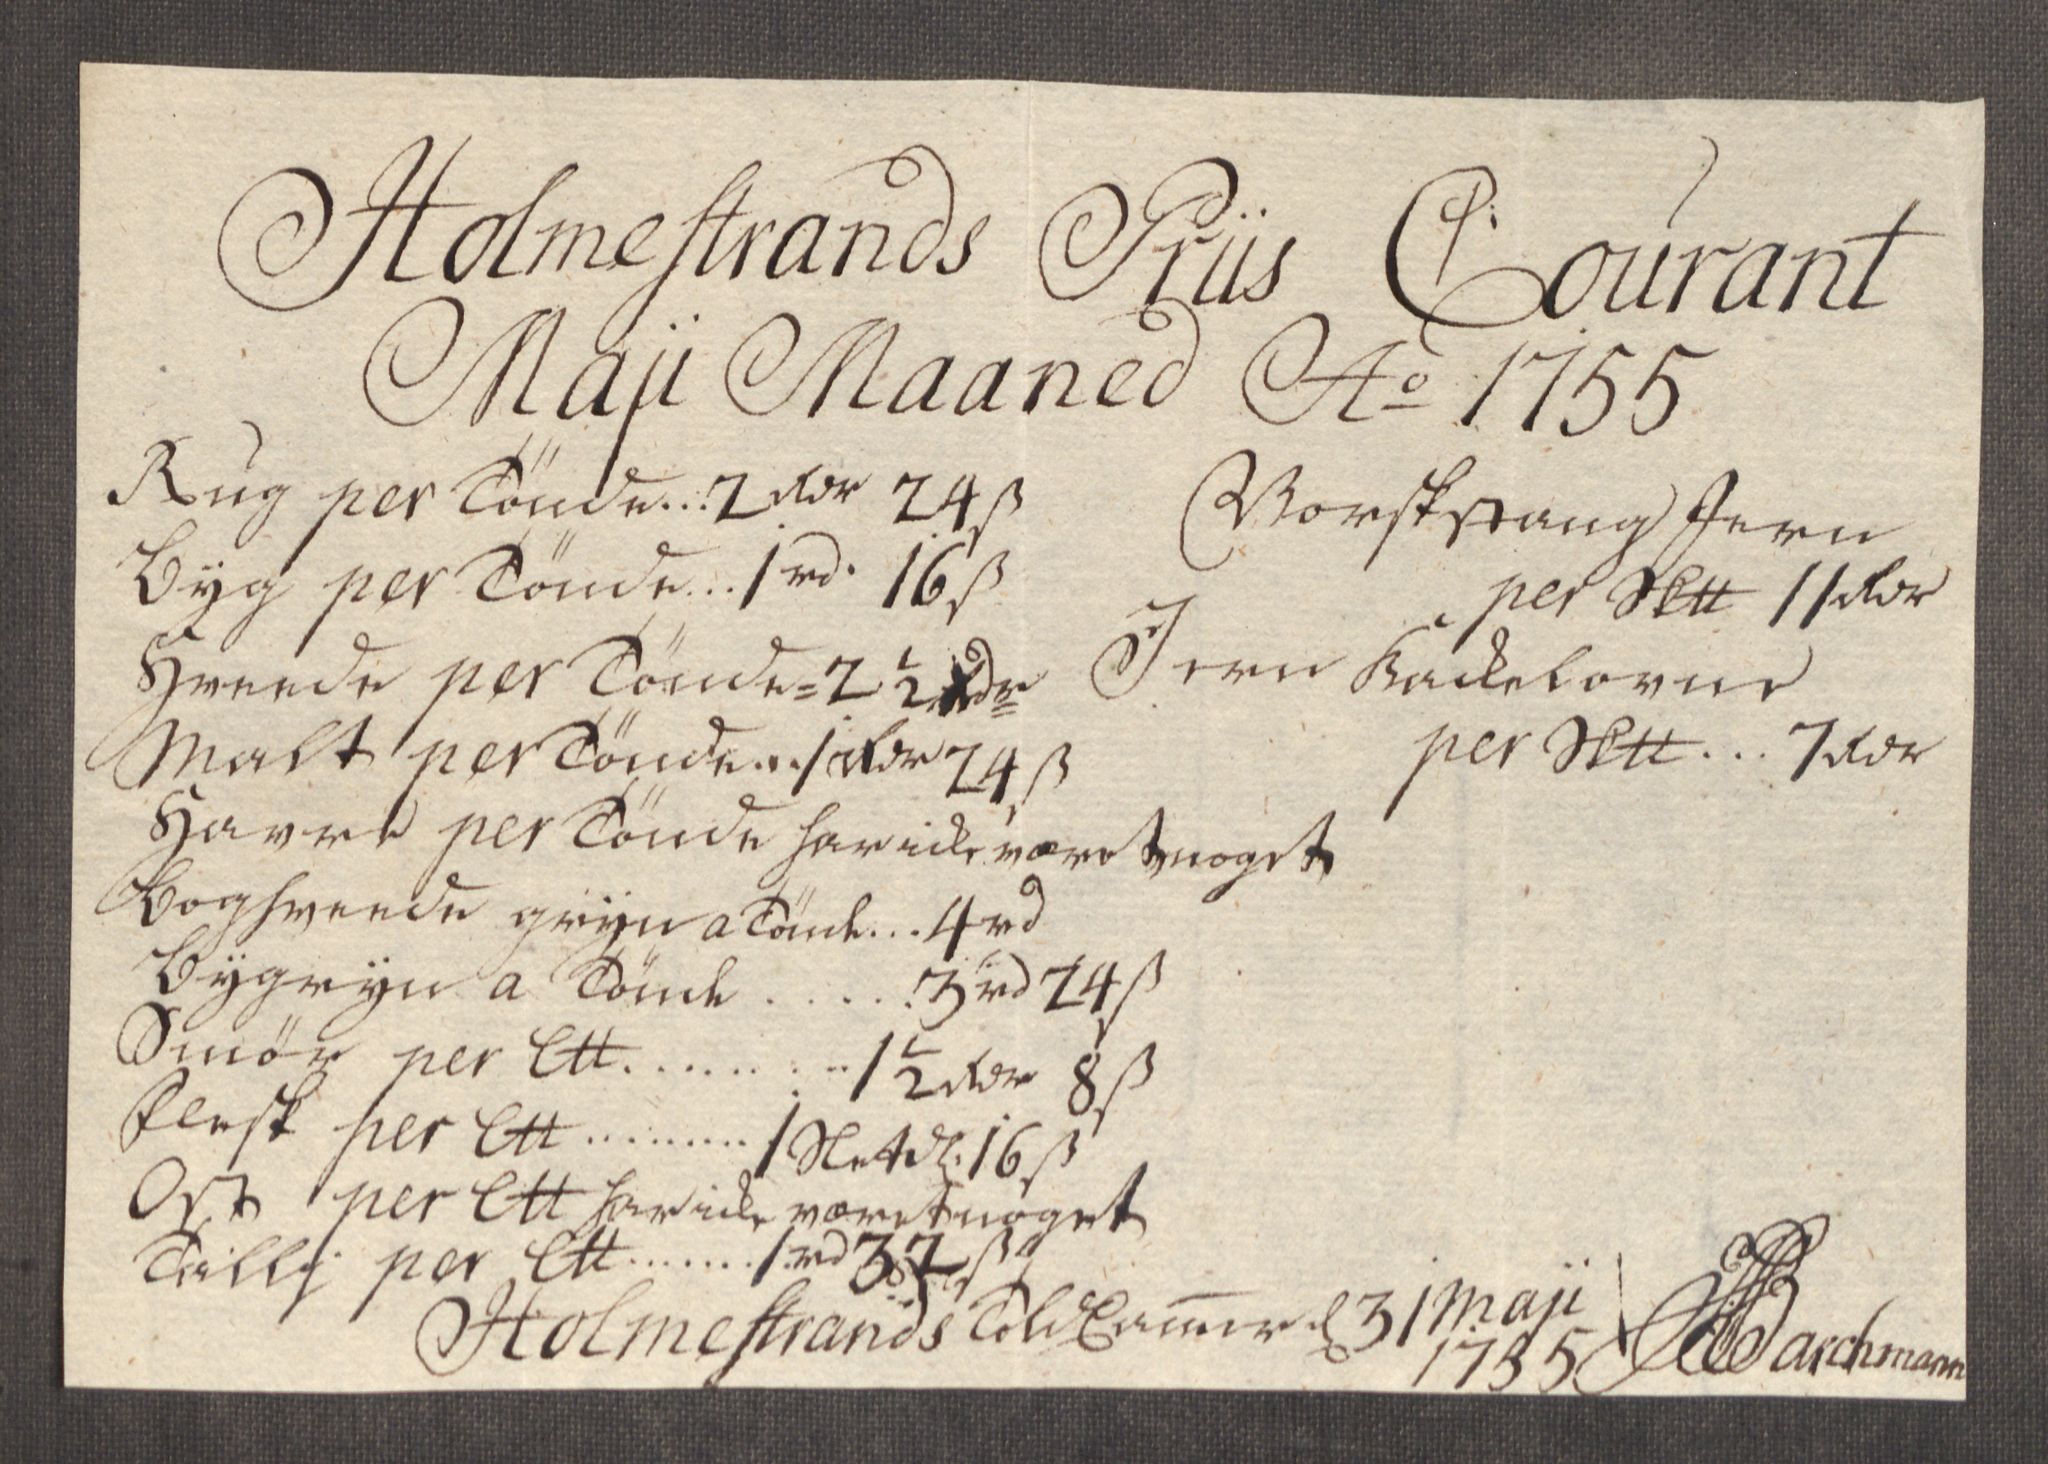 Holmestrands Priis Courant
Maji Maaned Ao 1755
Rug per Tönde... 2 Rdr 24 ß
Byg per Tönde... 1 rd. 16 ß
Hveede per Tönde = 2 1/2 rdr
Malt per Tönde... 1 Rdr 24 ß
Havre per Tönde har icke været noget
Boghveede grÿn a Tönde... 4 rd
Bÿgrÿn a Tönde ...... 3 rd 24 ß
Smör per L℔ ......... 1 1/2 Rdr 8 ß
Flesk per L℔ ......... 1 Sletdl. 16 ß
Ost per L℔ har icke været noget
Tallig per L℔ ....... 1 rd 32 ß
Norsk stang Jern
per S℔ 11 Rdr
Jern Kackelovne
per S℔ ... 7 Rdr
Holmestrands Told Camer d 31 Maji
1755 Barchmann